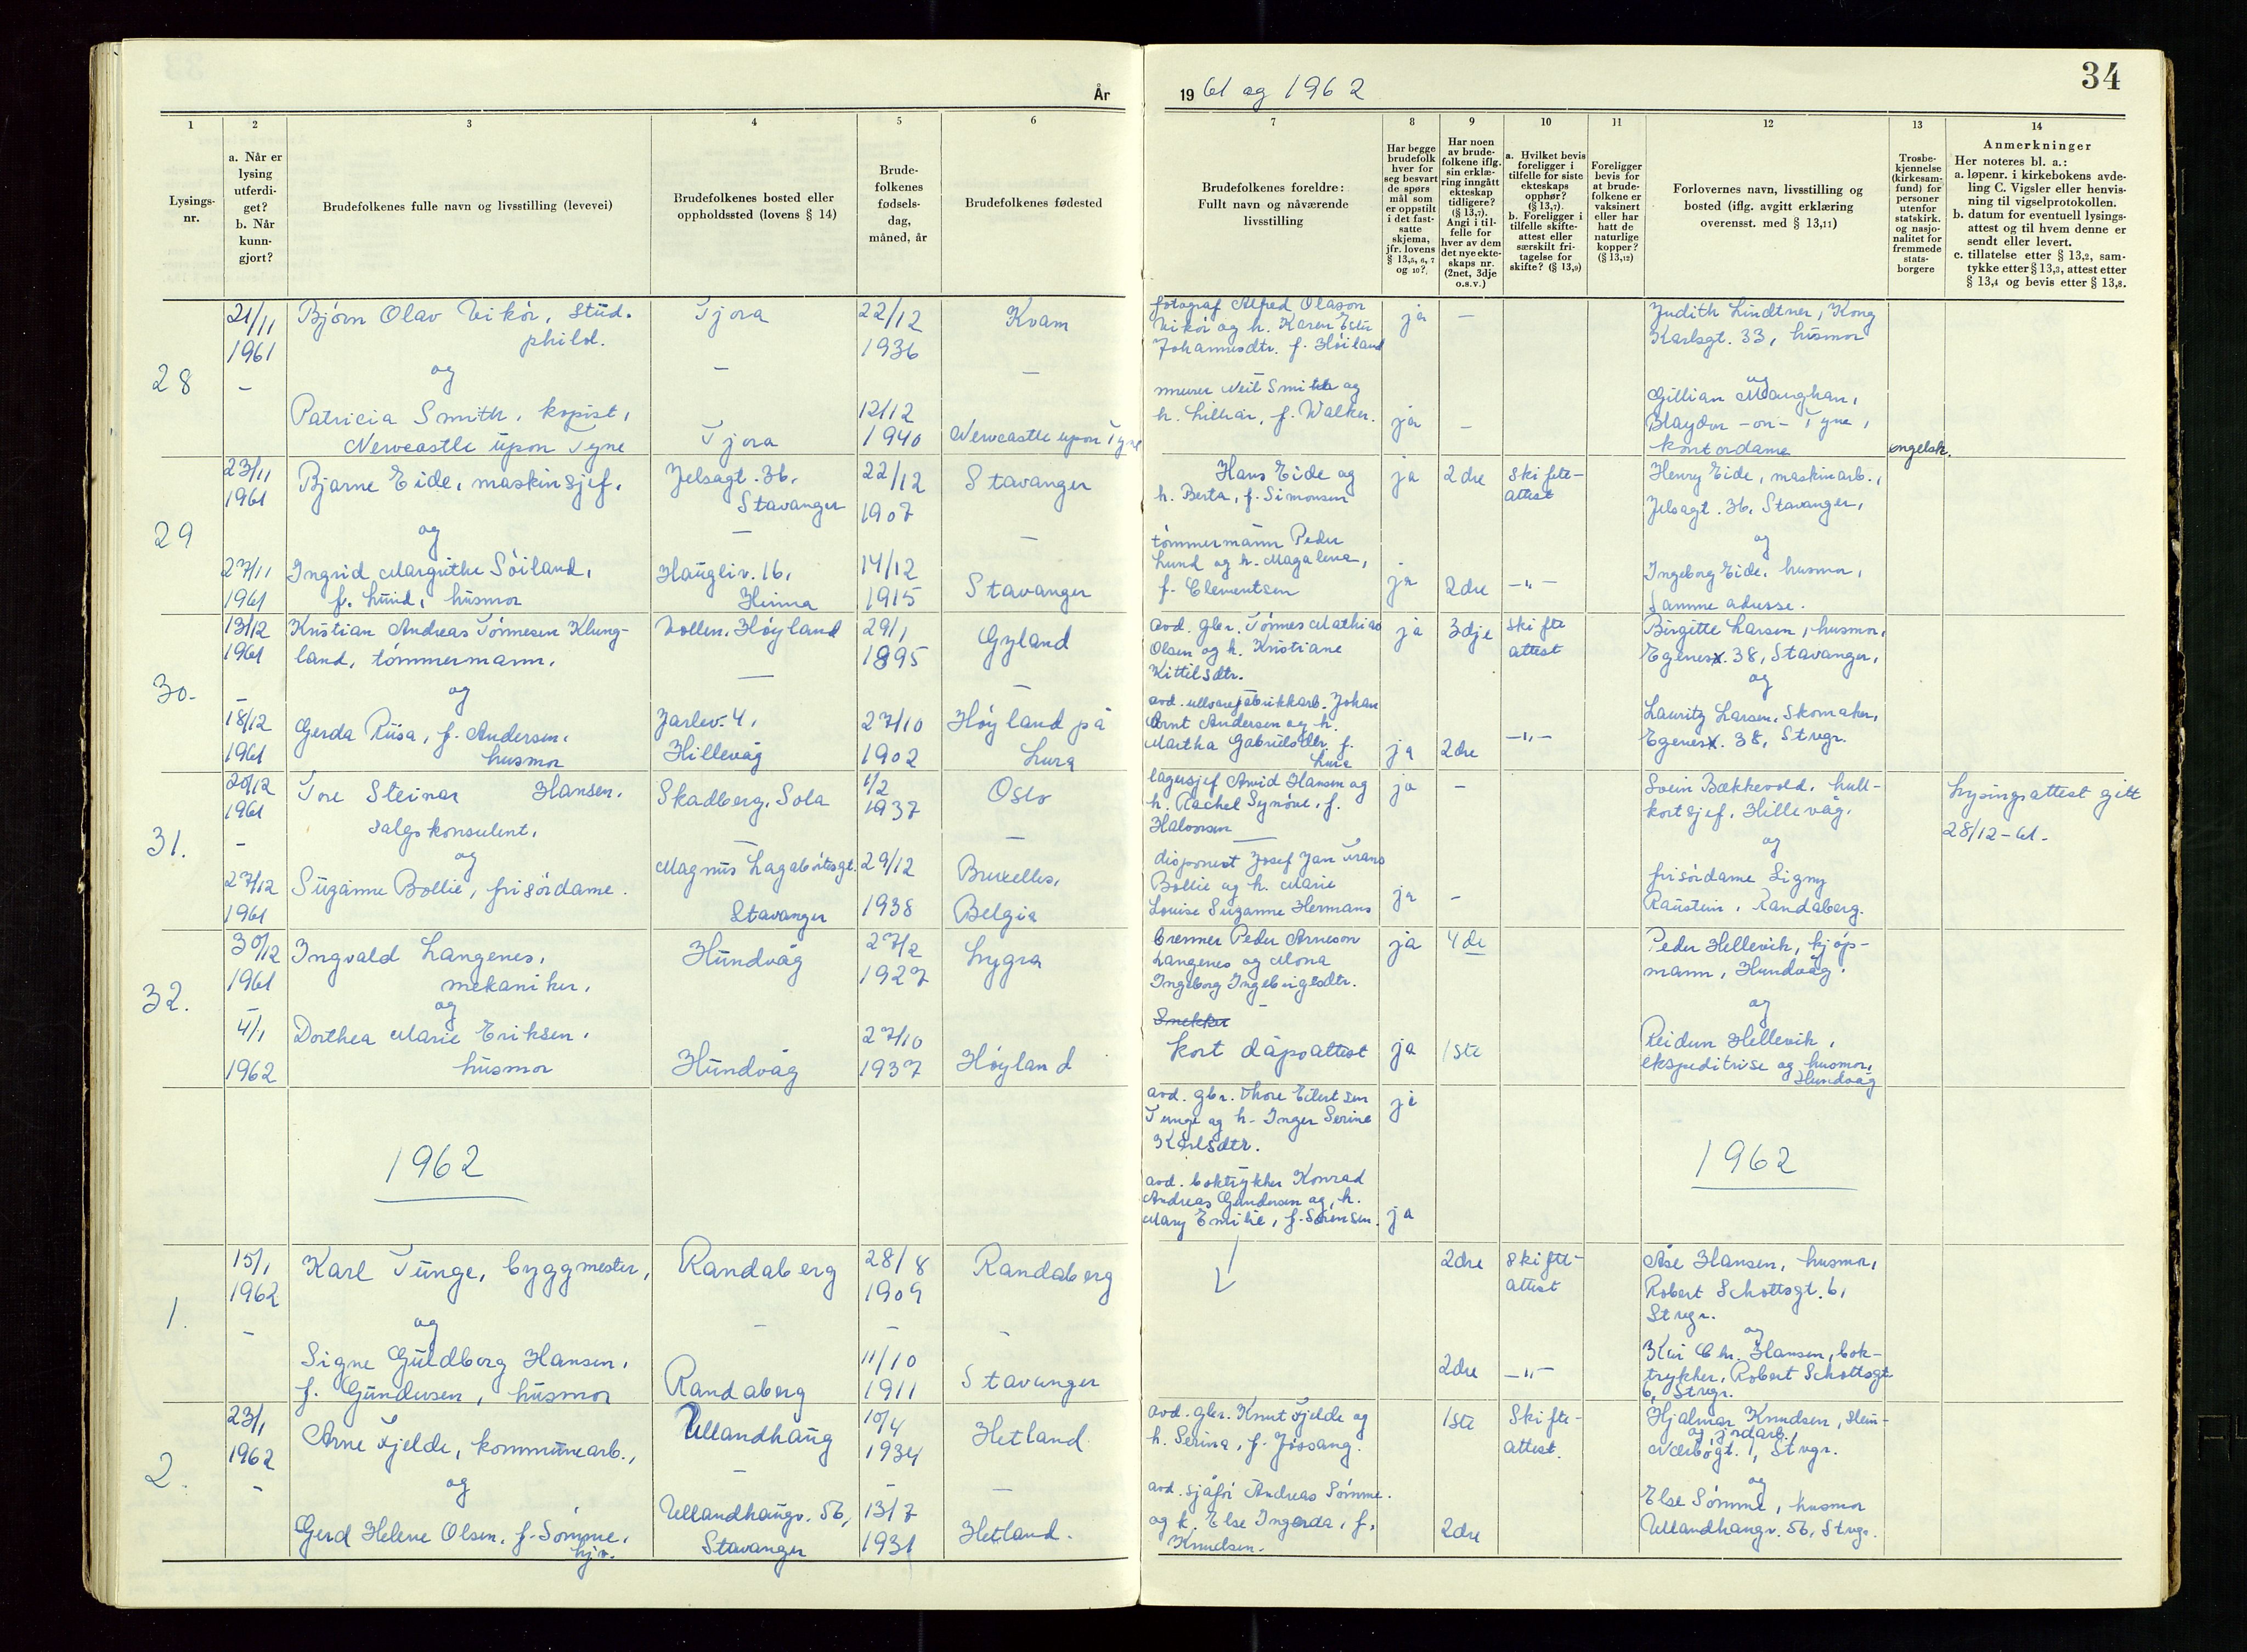 34
År
19 61 og 1962
1
2
3
4
5
6
7
8
9
10
11
12
13
14
Lysings-
nr.
a. Når er
lysing
utferdi-
get?
b. Når
kunn-
gjort?
Brudefolkenes fulle navn og livsstilling (levevei)
Brudefolkenes bosted eller
oppholdssted (lovens § 14)
Brude-
folkenes
fødsels-
dag,
måned, år
Brudefolkenes fødested
Brudefolkenes foreldre:
Fullt navn og nåværende
livsstilling
Har begge
brudefolk
hver for
seg besvart
de spørs
mål som
er oppstilt
i det fast-
satte
skjema,
jfr. lovens
§ 13,5, 6, 7
og 10?
Har noen
av brude-
folkene iflg.
sin erklæ-
ring inngått
ekteskap
tidligere?
(§ 13,7).
Angi i til-
felle for
hver av dem
det nye ekte-
skaps nr.
(2net, 3dje
o.s.v.)
a. Hvilket bevis
foreligger i
tilfelle for siste
ekteskaps
opphør?
(§ 13,7).
b. Foreligger i
tilfelle skifte-
attest eller
særskilt fri-
tagelse for
skifte? (§ 13,9)
Foreligger
bevis for
at brude-
folkene er
vaksinert
eller har
hatt de
naturlige
kopper?
(§ 13,12)
Forlovernes navn, livsstilling og
bosted (iflg. avgitt erklæring
overensst. med § 13,11)
Trosbe-
kjennelse
(kirkesam-
fund) for
personer
utenfor
statskirk.
og nasjo-
nalitet for
fremmede
stats-
borgere
Anmerkninger
Her noteres bl. a.:
a. løpenr. i kirkebokens avde-
ling C. Vigsler eller henvis-
ning til vigselprotokollen.
b. datum for eventuell lysings-
attest og til hvem denne er
sendt eller levert.
c. tillatelse etter § 13,2, sam-
tykke etter § 13,3, attest etter
§ 13,4 og bevis etter § 13,8.
28
21/11
1961
-
Bjørn Olav Vikør, stud.
philol.
og
Patricia Smith, kopist,
Newcastle upon Tyne
Tjora
-
Tjora
22/12
1936
12/12
1940
Kvam
-
Newcastle upon Tyne
fotograf Alfred Olason
Vikør og h. Karen Ester
Johannesdtr. f. Høiland
-
murer Neil Smith og
h. Lillian, f. Walker.
ja
ja
-
-
Judith Lindtner, Kong
Karlsgt. 33, husmor
og
Gillian Maughan,
Blaydon-on-Tyne,
kontordame
engelsk.
29
23/11
1961
27/11
1961
Bjarne Eide, maskinsjef.
og
Ingrid Margrethe Søiland,
f. Lund, husmor
Jelsagt. 36,
Stavanger
-
Haugliv. 16,
Hinna
22/12
1907
14/12
1915
Stavanger
-
Stavanger
Hans Eide og
h. Berta, f. Simonsen
tømmermann Peder
Lund og h. Magalena,
f. Clementsen
ja
ja
2dre
2dre
Skifte-
attest
-"-
Henry Eide, maskinarb.,
Jelsagt. 36, Stavanger,
og
Ingeborg Eide, husmor,
samme adresse.
30.
13/12
1961
-
18/12
1961
Kristian Andreas Tönnesen Klung-
land, tømmermann.
og
Gerda Riisa, f. Andersen,
husmor
Vollen, Høyland
-
Jarlev. 4,
Hillevåg
29/1
1895
27/10
1902
Gyland
-
Høyland på
Lura
avd. gbr. Tönnes Mathias
Olsen og h. Kristiane
Kittilsdtr.
avd. ullvarefabrikkarb. Johan
Arnt Andersen og h.
Martha Gabrielsdtr. f.
Lura
ja
ja
3dje
2dre
Skifte
attest
-"-
Birgitte Larsen, husmor,
Egenesv. 38, Stavanger,
og
Lauritz Larsen, Skomaker,
Egenesv. 38, Stvgr.
31.
20/12
1961
-
27/12
1961
Tore Steinar Hansen,
salgskonsulent.
og
Suzanne Bollie, frisørdame.
Skadberg, Sola
-
Magnus Lagabøtesgt.
Stavanger
1/2
1937
29/12
1938
Oslo
-
Bruxelles,
Belgia
lagersjef Arvid Hansen og
h. Rachel Synöve, f.
Halvorsen
disponent Josef Jan Frans
Bollie og h. Marie
Louise Suzanne Hermans
ja
ja
-
-
Svein Bækkevold, hull-
kortsjef, Hillevåg.
og
frisørdame Signy
Raustein, Randaberg.
Lysingsattest gitt
28/12-61.
32.
30/12
1961
-
4/1
1962
Ingvald Langenes,
mekaniker,
og
Dorthea Marie Eriksen,
husmor
Hundvåg
Hundvåg
27/2
1927
27/10
1937
Lygra
Høyland
brenner Peder Arneson
Langenes og Mona
Ingeborg Ingebrigtsdtr.
-
Snekker
kort dåpsattest
ja
ja
4de
1ste
Peder Hellevik, kjøp-
mann, Hundvåg.
og
Reidun Hellevik,
ekspeditrise og husmor,
Hundvåg
1962
avd. gbr. Thore Eilertsen
Tunge og h. Inger Serine
Karlsdtr.
-
avd. boktrykker Konrad
Andreas Gundersen og h.
Mary Emilie, f. Sörensen.
ja
ja
1962
1.
15/1
1962
-
Karl Tunge, byggmester,
og
Signe Guldborg Hansen,
f. Gundersen, husmor
Randaberg
-
Randaberg
28/8
1909
-
11/10
1911
Randaberg
-
Stavanger
2dre
2dre
Skifte-
attest
-"-
Åse Hansen, husmor,
Robert Schottsgt. 6,
Stvgr.
og
Chr. Hansen, bok-
trykker, Robert Schottsgt
6, Stvgr.
2.
23/1
1962
-
Arne Fjelde, kommunearb.,
og
Gerd Helene Olsen, f. Sømme,
hjv.
Ullandhaug
-
Ullandhaugv. 56,
Stavanger
10/4
1934
-
13/7
1931
Hetland
-
Hetland.
avd. gbr. Knut Fjelde og
h. Serina, f. Jøssang.
avd. sjåfør Andreas Sømme.
og h. Else Ingerda, f.
Knudsen.
1ste
2dre
Skifte-
attest.
Hjalmar Knudsen, stein-
og jordarb.,
Nærbøgt. 1, Stvgr.
og
Else Sømme, husmor
Ullandhaugv. 56, Stvgr.